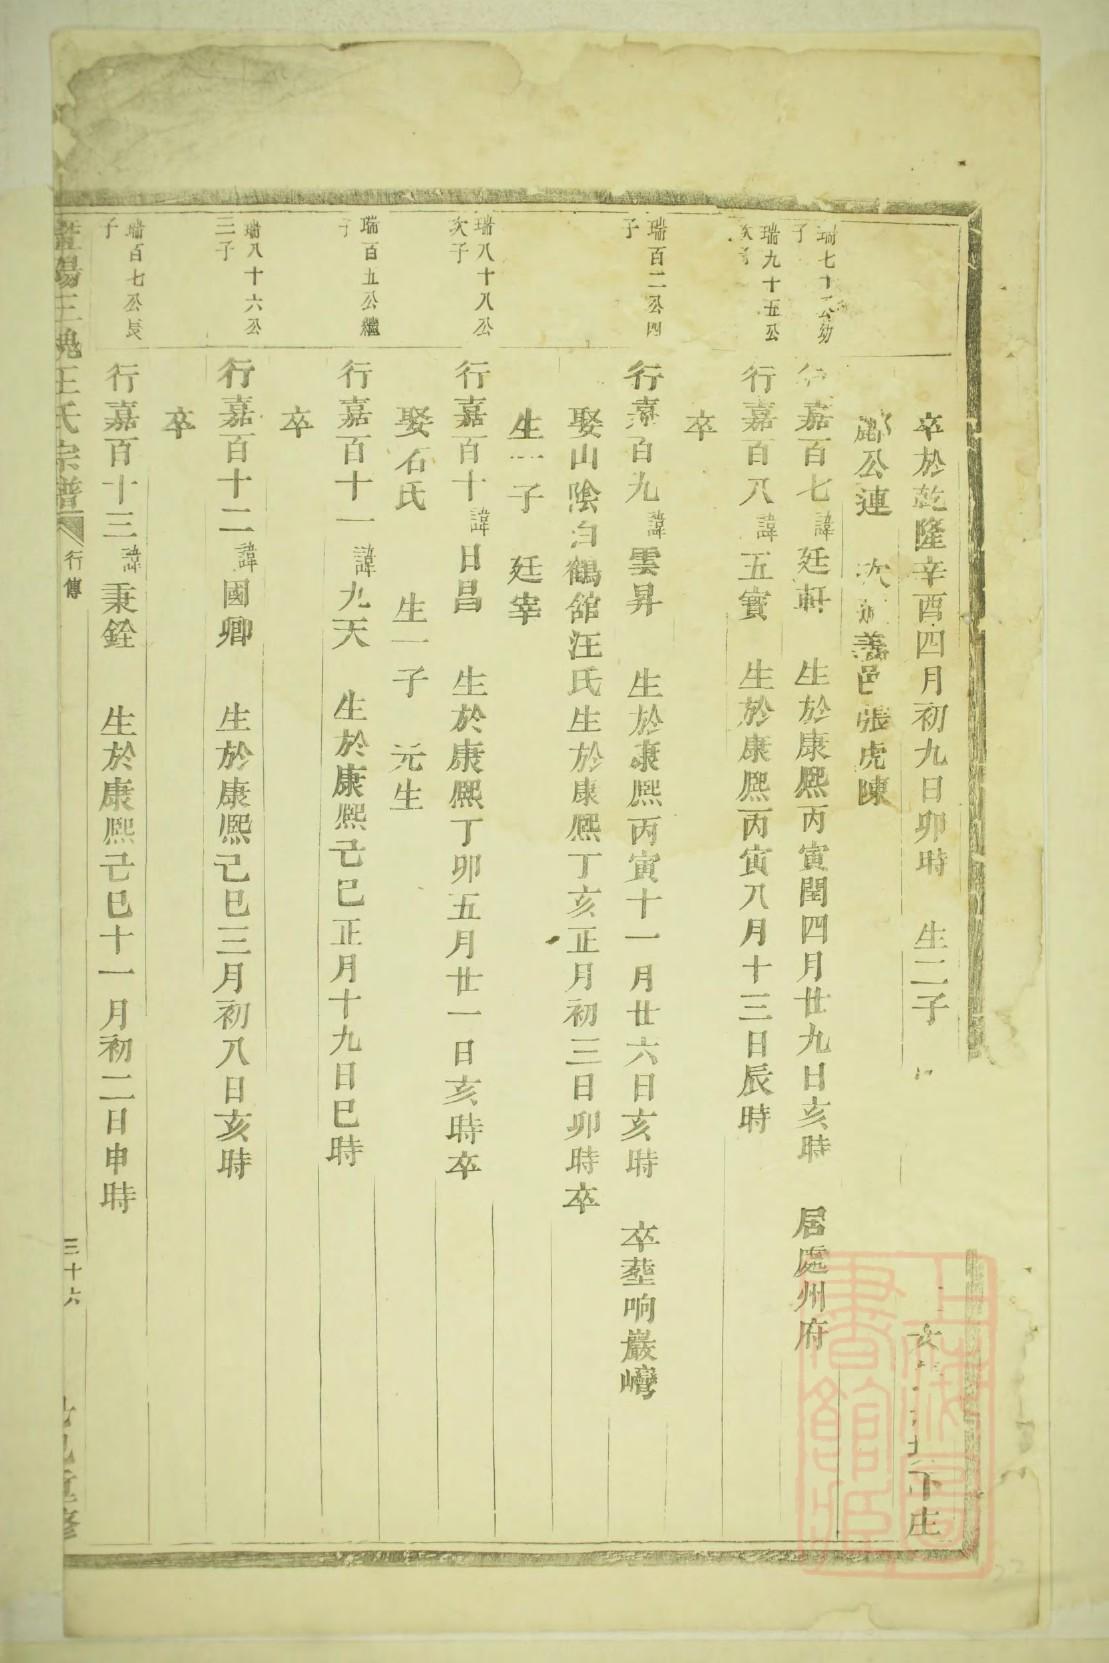 卒於乾隆辛酉四月初九日卯時 生二子
下庄
公連 次 義邑張虎陳
瑞七十 公幼子
行嘉百七諱廷軒 生於康熙丙寅閏四月廿九日亥時 居處州府
瑞九十五公次子
行嘉百八諱五寶 生於康熙丙寅八月十三日辰時
卒
瑞百二公四子
行嘉百九諱雲昇 生於康熙丙寅十一月廿六日亥時 卒塟响巖巒
娶山陰白鶴舘汪氏生於康熙丁亥正月初三日卯時卒
生一子 廷宰
瑞八十八公次子
行嘉百十諱日昌 生於康熙丁卯五月廿一日亥時卒
娶石氏 生一子 元生
瑞百五公繼子
行嘉百十一諱九天 生於康熙己巳正月十九日巳時
卒
瑞八十六公三子
行嘉百十二諱國卿 生於康熙己巳三月初八日亥時
卒
瑞百七公長子
行嘉百十三諱秉銓 生於康熙己巳十一月初二日申時
陽三槐王氏宗譜 行傳 三十六 重修
上海圖書館藏